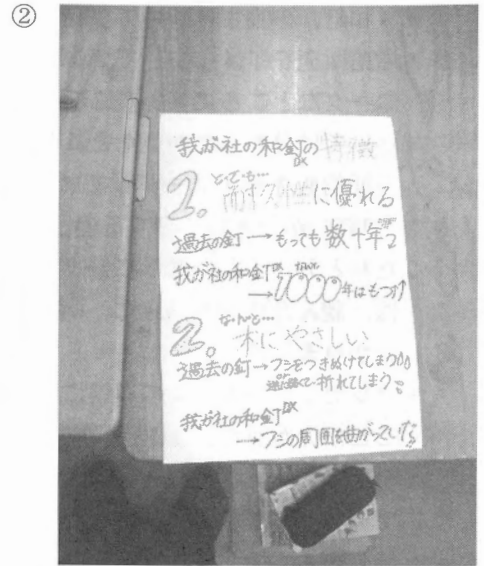 ②
我が社の和釘DXの特徴
1。とても…耐久性に優れる
過去の釘→もっても数十年
我が社の和釘DX
→なんと1000年はもつ!
2。な・ん・と…木にやさしい
過去の釘→フシをつきぬけてしまう
or 折れてしまう
我が社の和釘DX
→フシの周囲を曲がっていく